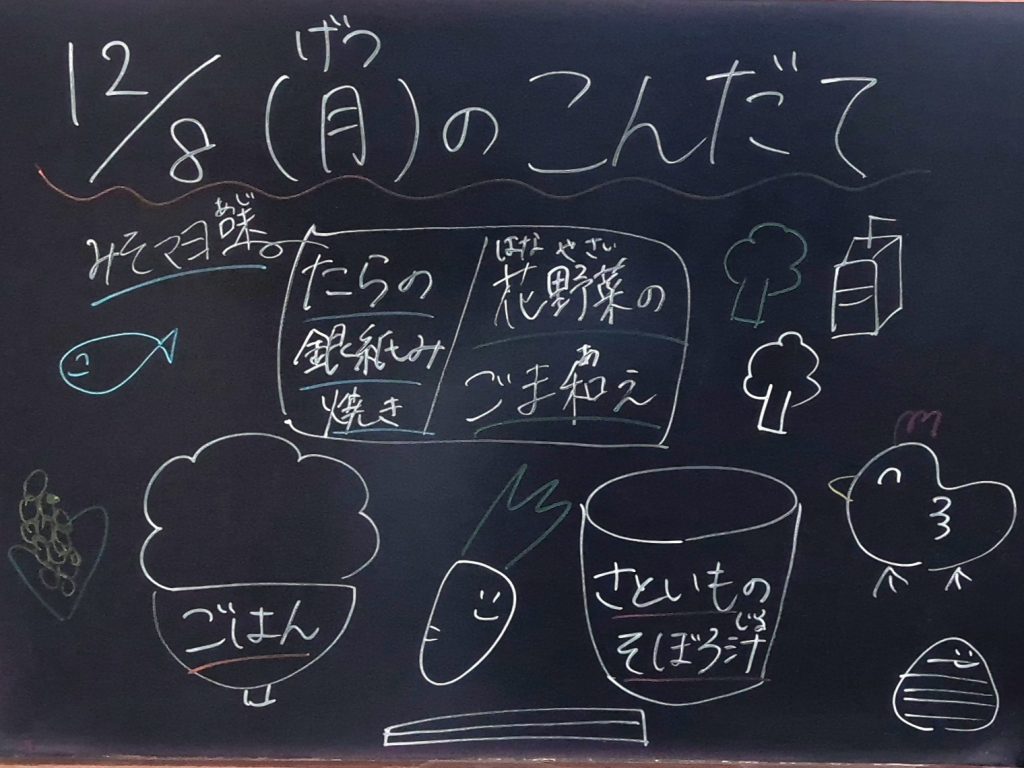 12/8(月)のこんだて
げつ
みそマヨ味。
あじ
たらの
銀紙
焼き
はな やさい
花野菜の
あ
ごま和え
ごはん
さといもの
じる
そぼろ汁